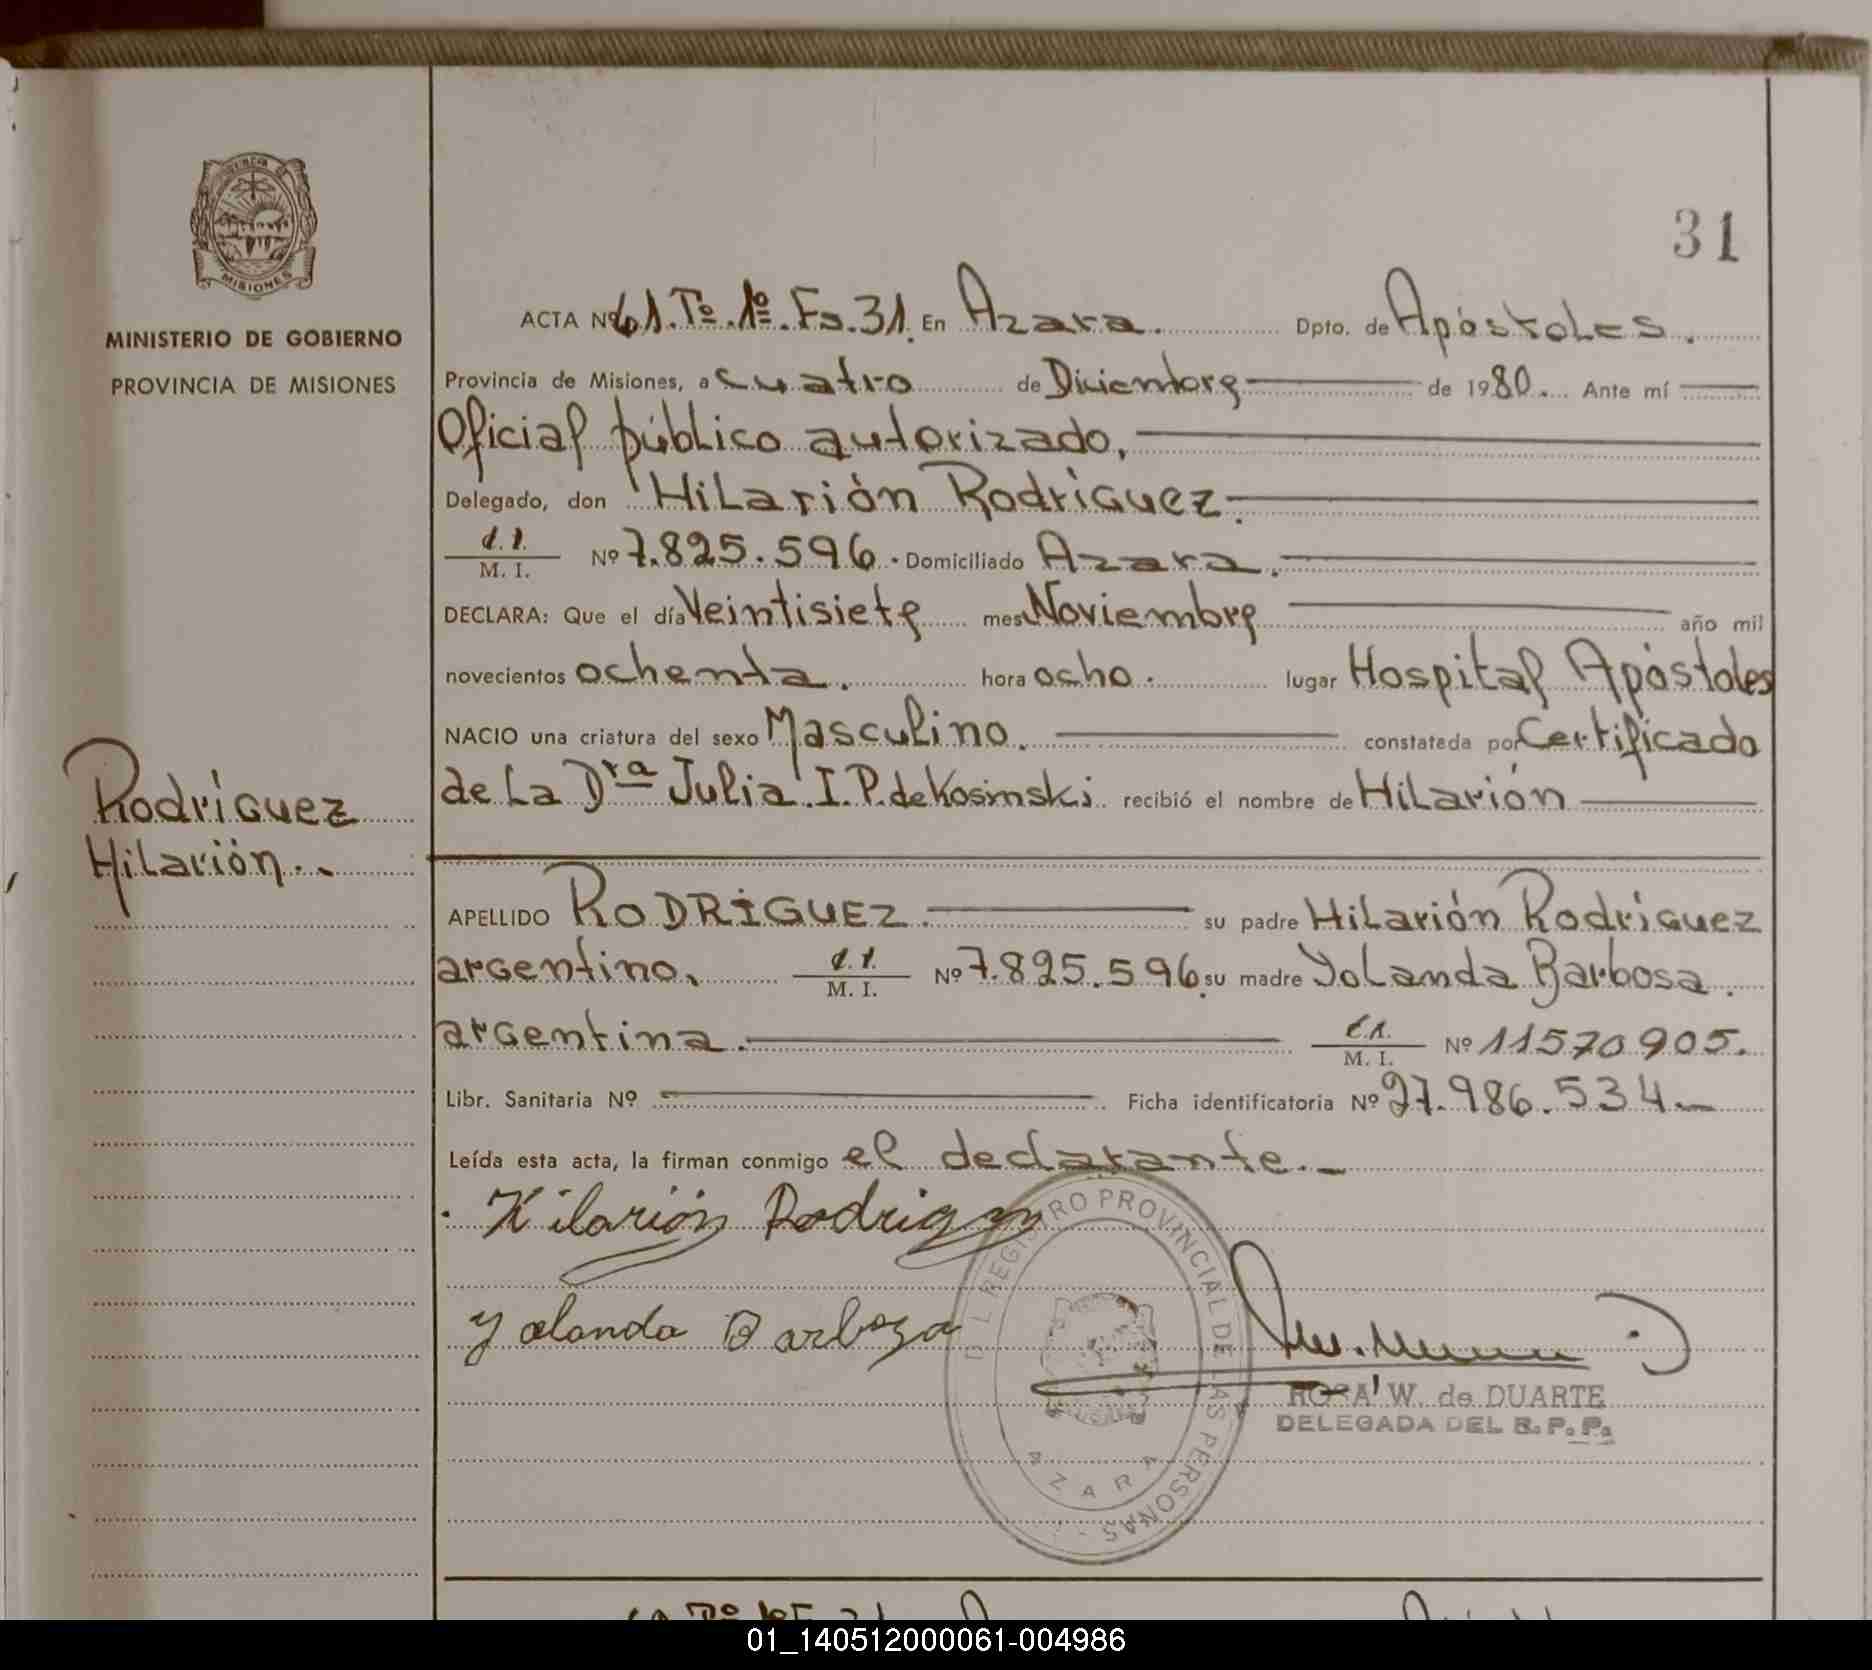 PROVINCIA DE
MISIONES
MINISTERIO DE GOBIERNO
PROVINCIA DE MISIONES
31
ACTA Nº 61.Tº.1º.Fs.31. En Azara. Dpto. de Apóstoles.
Provincia de Misiones, a cuatro de Diciembre de 1980. Ante mí
Oficial público autorizado,
Delegado, don Hilarión Rodríguez.
M. I. Nº 7.825.596. Domiciliado Azara.
DECLARA: Que el día Veintisiete mes Noviembre año mil
novecientos ochenta. hora ocho. lugar Hospital Apóstoles
NACIO una criatura del sexo Masculino. constatada por Certificado
de La Dra Julia I. P. de Kosinski recibió el nombre de Hilarión
Rodríguez
Hilarión..
APELLIDO RODRÍGUEZ. su padre Hilarión Rodríguez
argentino, M. I. Nº 7.825.596. su madre Yolanda Barbosa.
argentina. M. I. Nº 11570905.
Libr. Sanitaria Nº Ficha identificatoria Nº 27.986.534.
Leída esta acta, la firman conmigo el declarante.
Hilarión Rodriguez
Yolanda Barboza
D L REGISTRO PROVINCIAL DE LAS PERSONAS
AZARA
ROSA W. de DUARTE
DELEGADA DEL R. P. P.
01_140512000061-004986